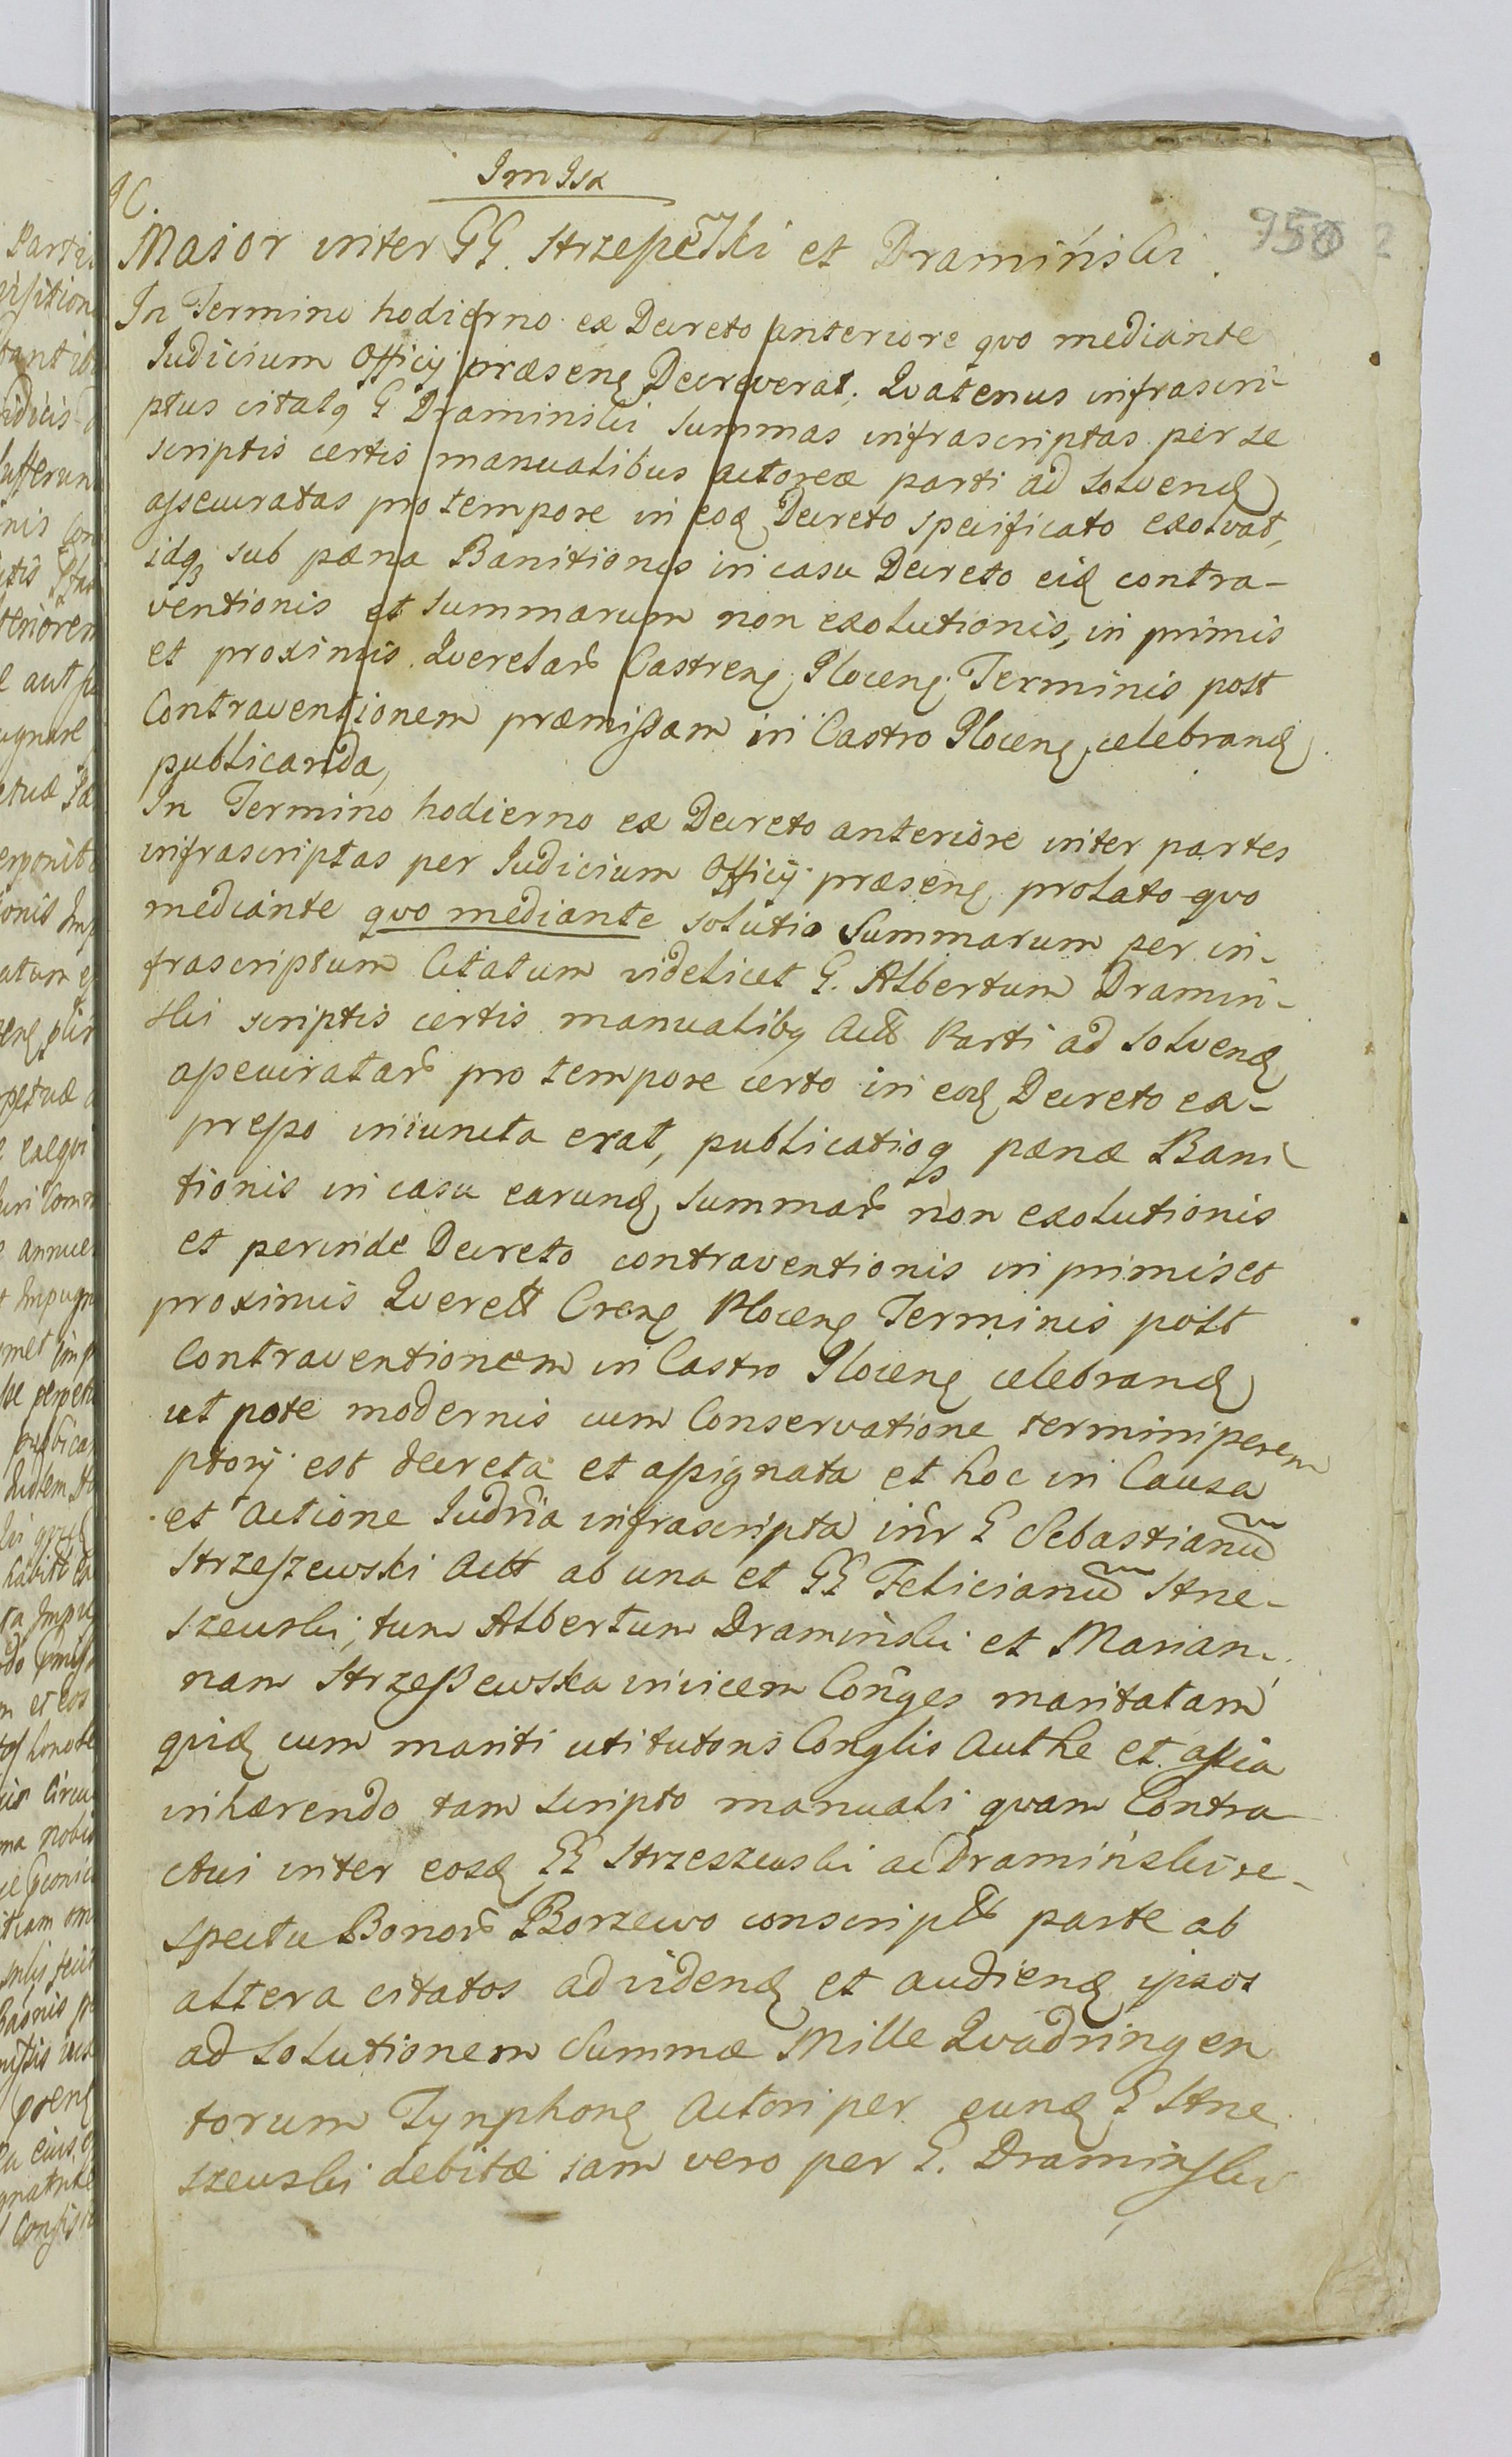 Maior inter GG. Strzeszewski et Draminski
In Termino hodierno ex Decreto anteriore quo mediante
Iudicium Officij præsens Decreverat. Quatenus infrascri-
ptus citatq G Draminski summas infrascriptas per se
scriptis certis manualibus actoreæ parti ad solvend
assecuratas pro tempore in eod Decreto specificato exolvat,
idq sub pæna Banitionis in casu Decreto eid contra-
ventionis et summarum non exolutionis, in primis
et proximis Querelar Castrens Plocens Terminis post
Contraventionem præmissam in Castro Plocens celebrand
publicanda,
In Termino hodierno ex Decreto anteriore inter partes
infrascriptas per Iudicium Officij præsens prolato quo
mediante quo mediante solutio Summarum per in-
frascriptum Citatum videlicet G. Albertum Dramin-
ski scriptis certis manualibq Act Parti ad solvend
assecuratar pro tempore certo in eod Decreto ex-
presso iniuncta erat, publicatioq pænæ Bani
tionis in casu earund summar non exolutionis
et perinde Decreto contraventionis in primis et
proximis Querell Crens Plocens Terminis post
Contraventionem in Castro Plocens celebrand
ut pote modernis cum Conservatione termini perem
ptorij est decreta et assignata et hoc in Causa
et Actione Iudria infrascripta intr G Sebastianu
Strzeszewski Act ab una et GG Felicianu Strze-
szewski, tum Albertum Dramiński et Marian-
nam Strzeszewska invicem Conges maritatam
quid cum mariti uti tutoris Conglis Authe et assia
inhærendo tam scripto manuali quam Contra
ctui inter eosd GG Strzeszewski ac Dramiński re-
spectu Bonor Borzewo conscript parte ab
altera citatos ad vidend et audiend ipsos
ad solutionem Summæ Mille Quadringen
torum Tynphons Actori per eund G Strze
szewski debitæ iam vero per G. Draminski